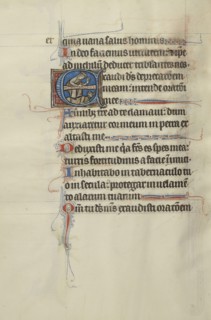 er
quia uana salus hominis
In deo faciemus uirtutem: et ipse
ad nichilum deducet tribulantes nos
Exaudi deus deprecationem
meam: intende orationi
mee
A finibus terre ad te clamaui: dum
anxiaretur cor meum in petra ex
altasti me
Deduxisti me quia factus es spes mea:
turris fortitudinis a facie inimici
Inhabitabo in tabernaculo tuo
in secula: protegar in uelamen
to alarum tuarum
Quoniam tu deus meus exaudisti orationem